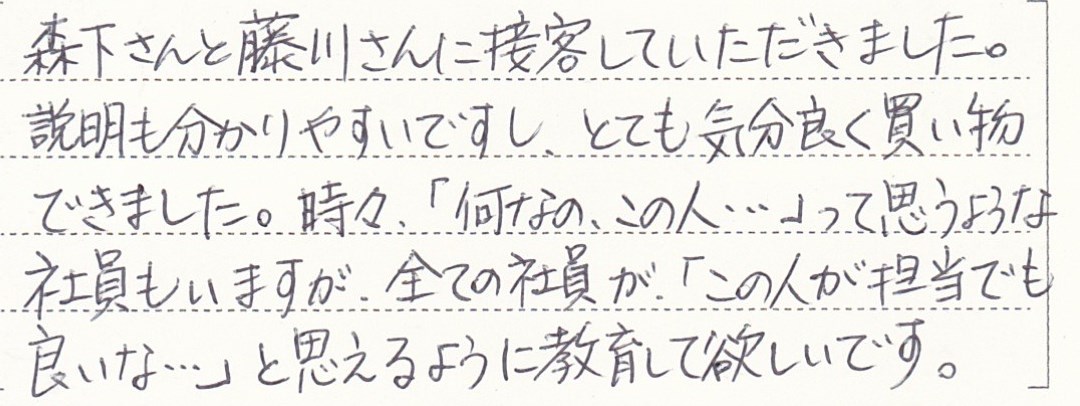 森下さんと藤川さんに接客していただきました。
説明も分かりやすいですし、とても気分良く買い物
できました。時々、「何なの、この人…」って思うような
社員もいますが、全ての社員が、「この人が担当でも
良いな…」と思えるように教育して欲しいです。